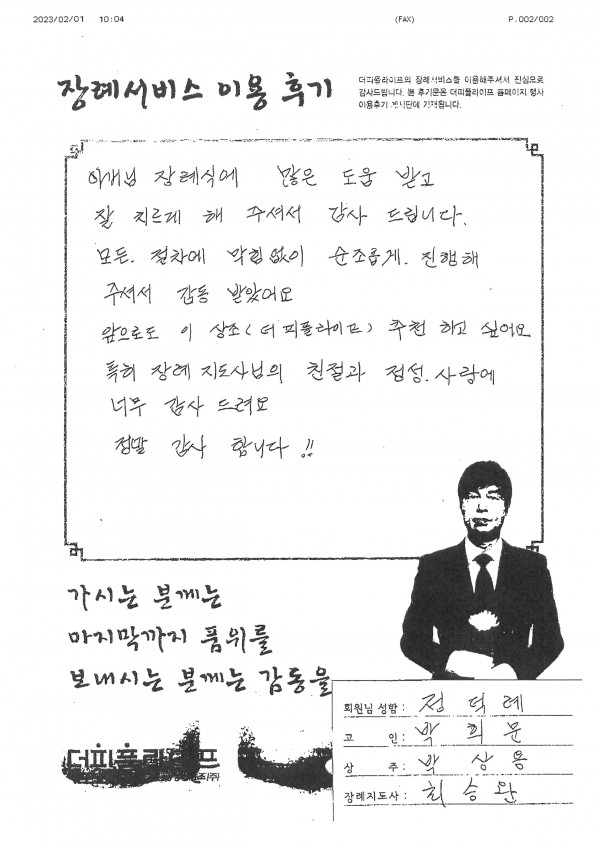 2023/02/01 10:04 (FAX) P.002/002
장례서비스 이용 후기
더피플라이프의 장례서비스를 이용해주셔서 진심으로
감사드립니다. 본 후기문은 더피플라이프 홈페이지 행사
이용후기 게시판에 기재됩니다.
아버님 장례식에 많은 도움 받고
잘 치르게 해 주셔서 감사 드립니다.
모든. 절차에 막힘없이 순조롭게. 진행해
주셔서 감동 받았어요
앞으로도 이 상조(더피플라이프) 추천 하고 싶어요
특히 장례 지도사님의 친절과 정성.사랑에
너무 감사 드려요
정말 감사 합니다 !!
가시는 분께는
마지막까지 품위를
보내시는 분께는 감동을
회원님 성함 : 정덕례
고 인 : 박희문
상 주 : 박상용
장례지도사 : 최승완
더피플라이프